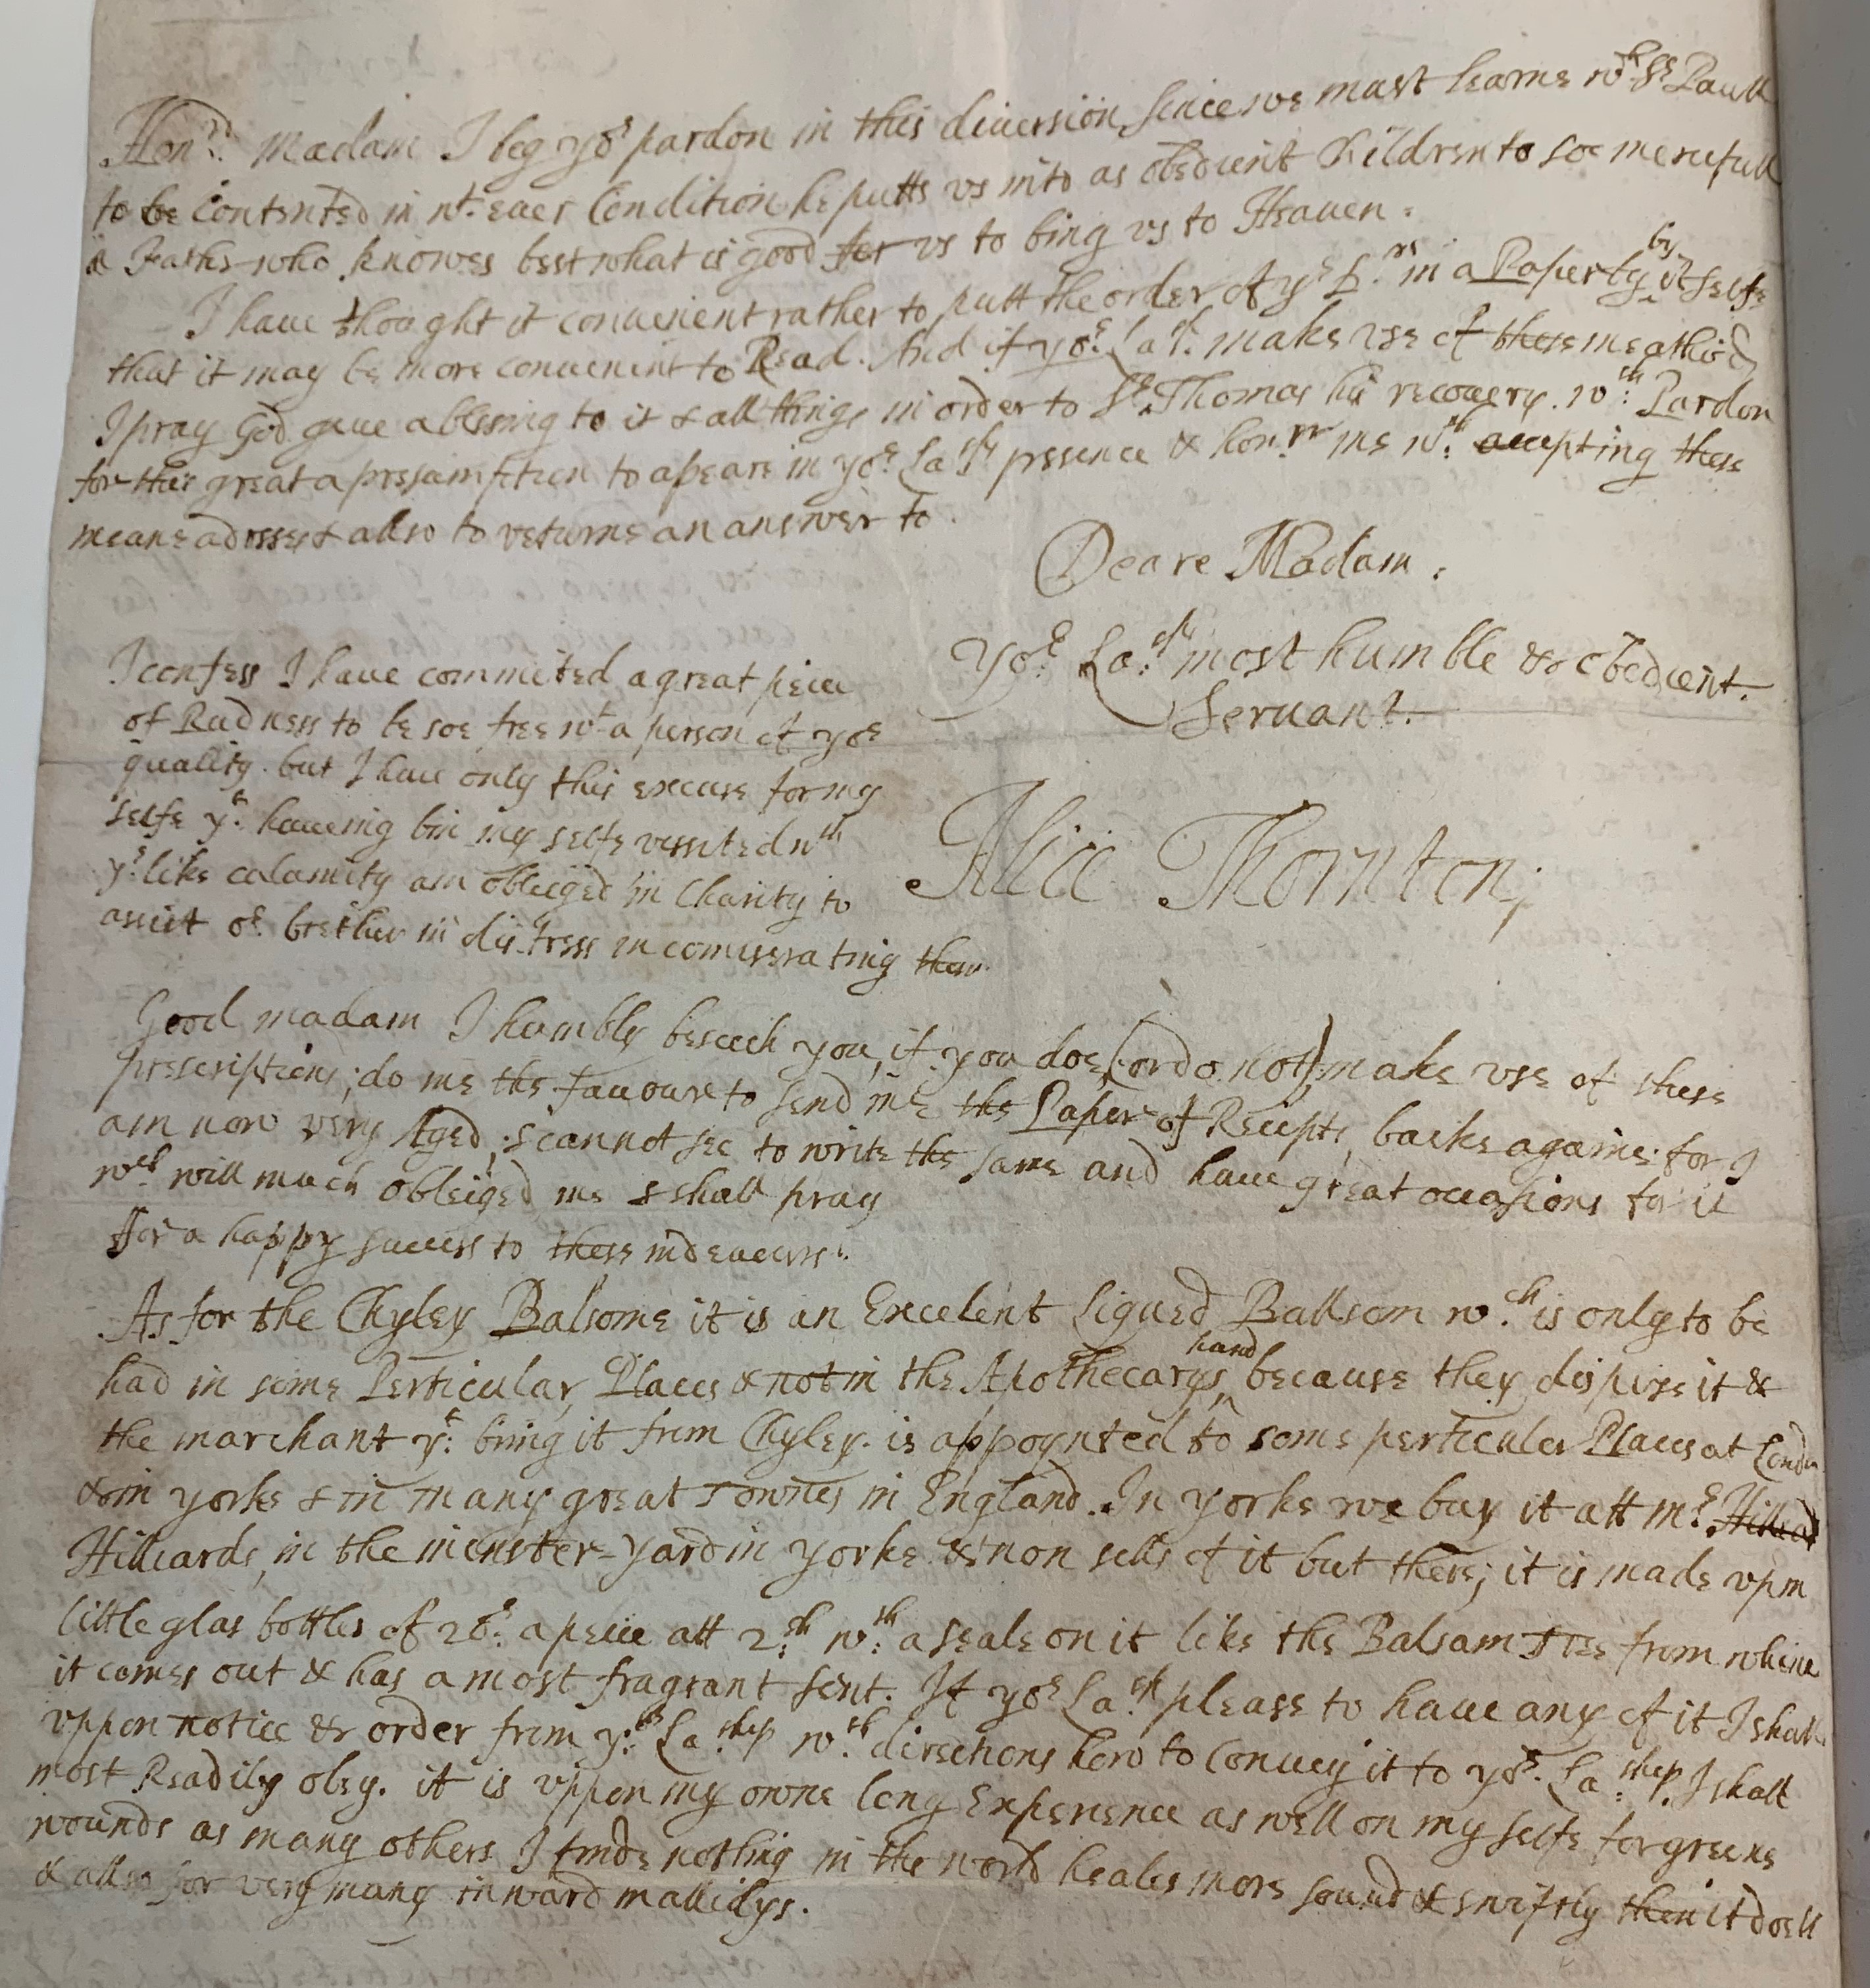 Honrd: Madam I beg yor pardon in this diuersion, Since we must learne wth St Paull
to be Contented in wt. euer Condition he putts vs into as obedient Children to soe mercifull
a Father who knowes best what is good for vs to bing vs to Heauen.
I haue thought it conuenient rather to putt the order of ye Drs in a Paper by it selfe
that it may be more conuenient to Read. And if yor: Lasp: make vse of these meathod,
I pray God giue a blessing to it & all things in order to Sr. Thomas his recouery. wth: Pardon
for this great apresumption to apeare in yor: Lasps presence & honrr me wth: accepting these
meane adresses & allso to returne an answer to.
Deare Madam.
Yor: Lasps: most humble & obedient.
Seruant.
I confess I haue commited a great peice
of Rudness to be soe free wt a person of yor
quality. but I haue only this excuse for my
selfe yt: haueing bin my selfe vissited wth
ye: like calamity am obleiged in Charity to
assist or. brether in distress in comiserating them
Alice Thornton;
Good madam I humbly beseech you, if you doe, (or do not) make vse of these
prescriptions; do me the fauoure to send me the Paper of Recipts, backe againe. for I
am now very Aged, & cannot see to write the same and haue great occasions for it
wch will much obleiged me & shall pray
for a happy success to these indeauours.
As for the Chyley Balsome it is an Excelent Liqued Ballsom wch: is only to be
had in some Perticular, Places & not in the Apothecarys hand because they dispise it &
the marchant yt: bring it from Chyley. is appoynted to some perticuler Places at London
& in yorke & in many great Townes in England. In yorke we buy it att Mr: Hilliard
Hilliards, in the minster-yard in yorke. & non sells of it but there; it is made vp in
little glas bottles of a peice att 2sh: wth: a seale on it like the Balsam Tree from whence
it comes out & has a most fragrant sent. If yor Lasp: please to haue any of it I shall
vppon notice & order from yr: La:shep wth: directions how to Conuey it to yor. La:shep. I shall
most Readily obey. it is vppon my owne long Experience as well on my selfe for greene
wounds as many others I finde nothing in the world heales more sound & swiftly then it doeth
& allso for very many inward mallidys.